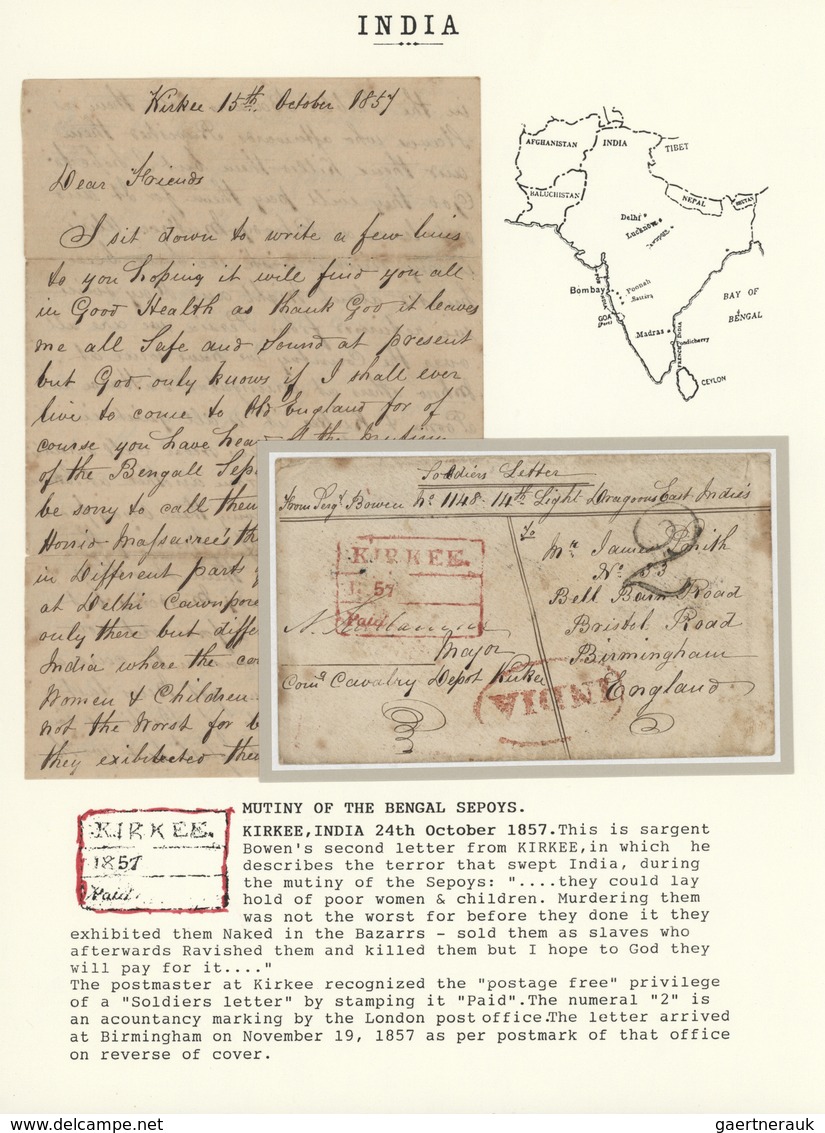 INDIA
Kirkee 15th October 1857
Dear Friends
I sit down to write a few lines
to you hoping it will find you all
in Good Health as thank God it leaves
me all Safe and Sound at present
but God only knows if I shall ever
live to come to Old England for of
course you have hear
of the Bengall Sep
be sorry to call them
Horrid Massacree's th
in Different parts
at Delhi Cawnpore
only there but diffe
India where the co
Women & Children
not the Worst for b
they exibited the
AFGHANISTAN
INDIA
TIBET
BALUCHISTAN
NEPAL
BHUTAN
Delhi
Lucknow
Cawnpore
Bombay
Poonah
Sattara
GOA
(Port)
BAY OF
BENGAL
Madras
Pondicherry
FRENCH INDIA
CEYLON
Soldiers Letter
From Sergt Bowen No 1148-14th Light Dragoons East Indie's
To
Mr James Smith
No 53
Bell Barn Road
Bristol Road
Birmingham
England
KIRKEE.
1857
Paid
2
Major
Comg Cavalry Depot Kirkee
INDIA
KIRKEE.
1857
Paid
MUTINY OF THE BENGAL SEPOYS.
KIRKEE,INDIA 24th October 1857.This is sargent
Bowen's second letter from KIRKEE,in which he
describes the terror that swept India, during
the mutiny of the Sepoys: "....they could lay
hold of poor women & children. Murdering them
was not the worst for before they done it they
exhibited them Naked in the Bazarrs - sold them as slaves who
afterwards Ravished them and killed them but I hope to God they
will pay for it...."
The postmaster at Kirkee recognized the "postage free" privilege
of a "Soldiers letter" by stamping it "Paid".The numeral "2" is
an acountancy marking by the London post office.The letter arrived
at Birmingham on November 19, 1857 as per postmark of that office
on reverse of cover.
gaertnerauk